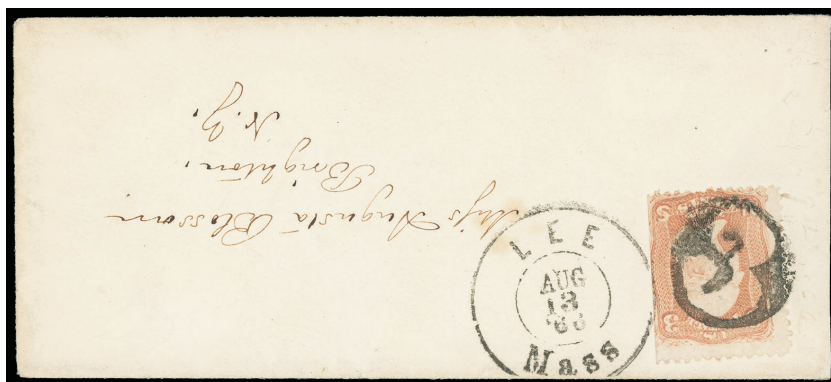 Miss Augusta Blossom
Brighton,
N.Y.
LEE
AUG
13
'66
Mass
3